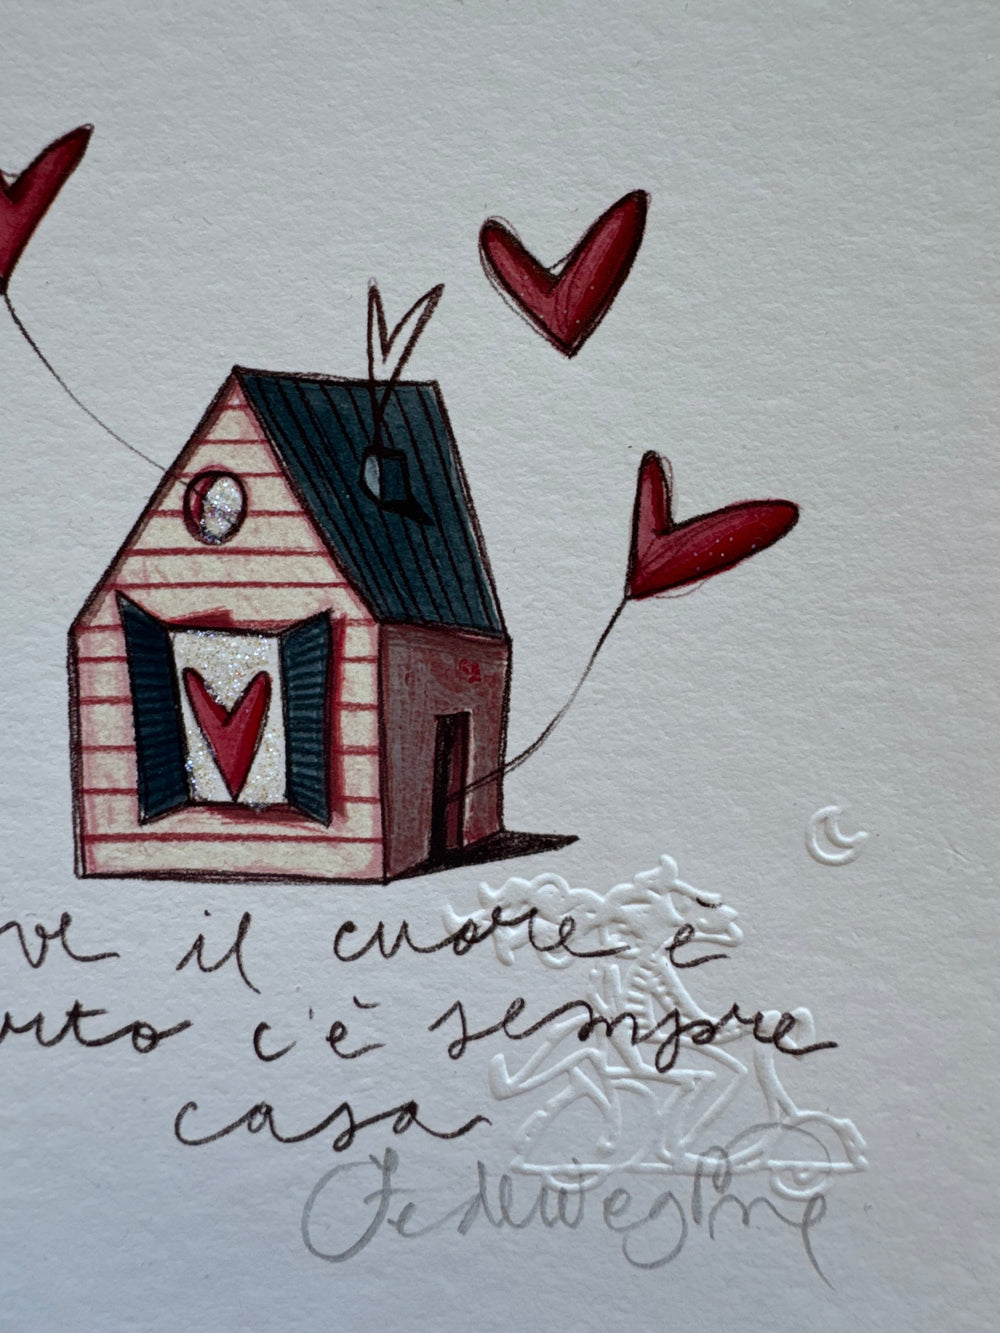 ve il cuore è
rto c'è sempre
casa